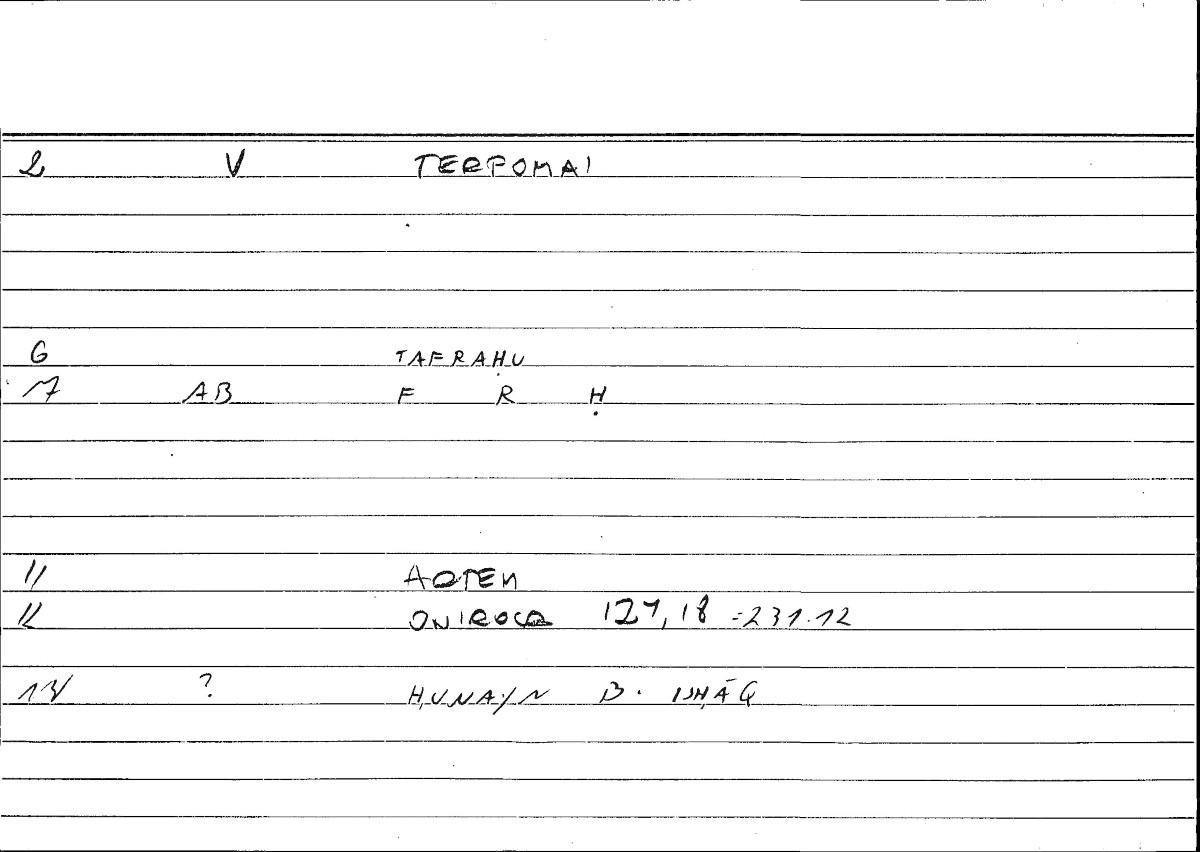 2 V TERPOMAI
6 TAFRAḤU
7 AB F R Ḥ
11 ARTEM
12 ONIROCR 127,18 =231.12
13 ? ḤUNAYN B. ISḤĀQ